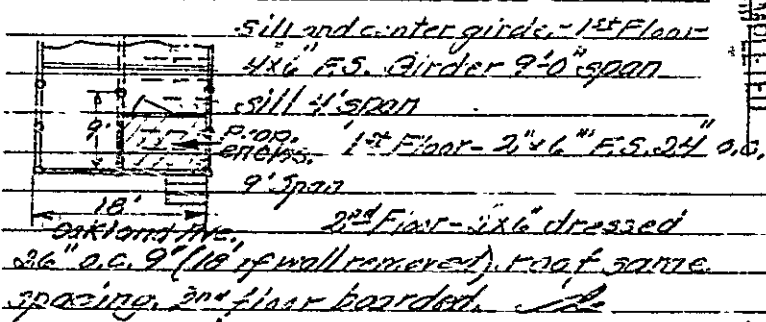 sill and center girder - 1st Floor -
4x6" F.S. Girder 9'-0" span
sill 4' span
9' Prop. encls. 1st Floor - 2"x6" F.S. 24" o.c.
9' span
18'
Oakland Ave. 2nd Floor - 2x6" dressed
26" o.c. 9' (18' if wall removed). roof same
spacing. 2nd floor boarded.